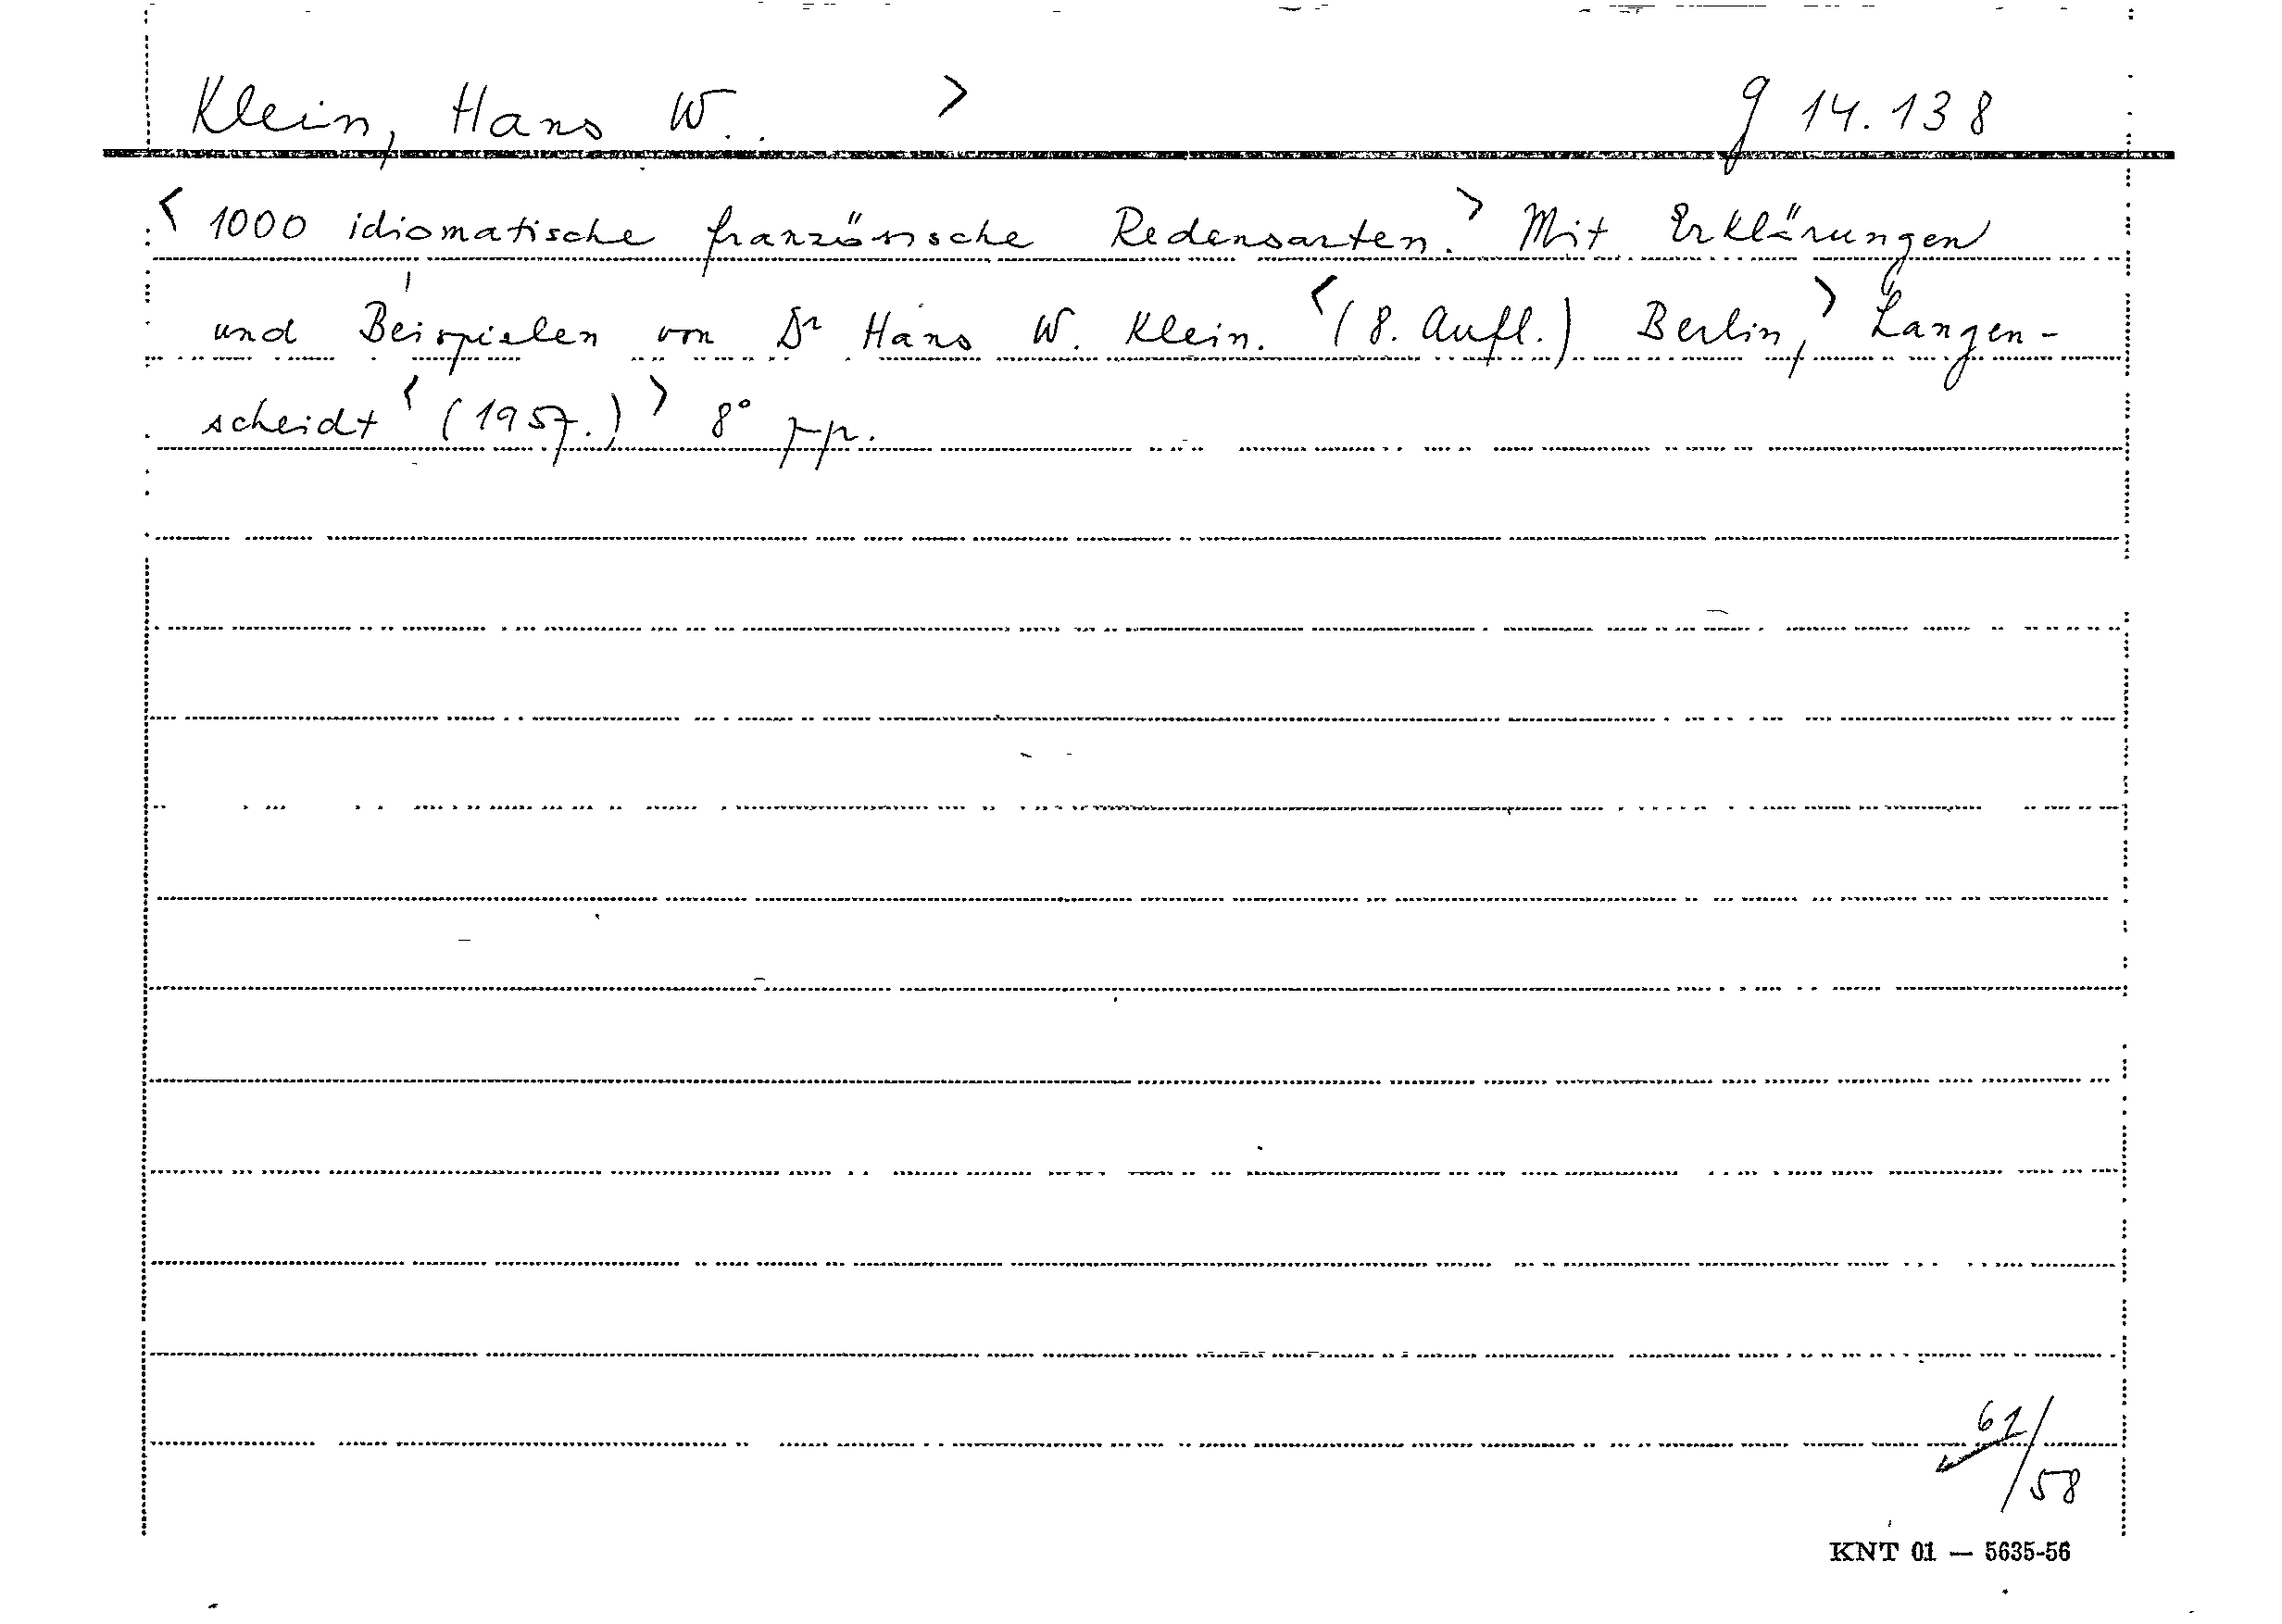 Klein, Hans W. > g 14.138
< 1000 idiomatische französische Redensarten. > Mit Erklärungen
und Beispielen von Dr Hans W. Klein. < (8. Aufl.) Berlin, > Langen-
scheidt < (1957.) > 8°
61/58
KNT 01 — 5635-56